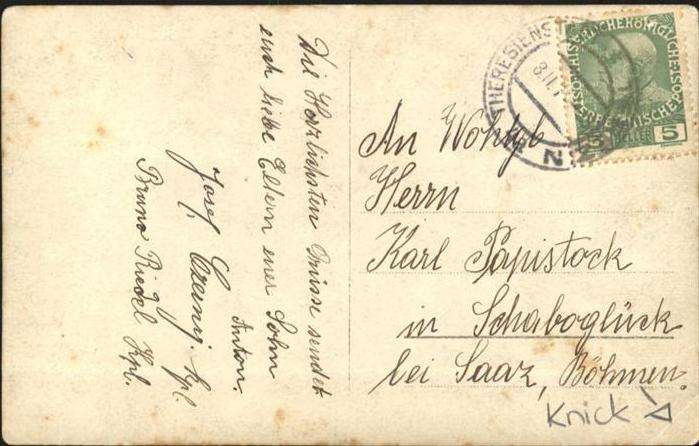 Die Herzlichsten Grüsse sendet
euch liebe Eltern euer Sohn
Anton.
Josef Czerny Kpl.
Bruno Riedel Kpl.
THERESIENS
8.II.1
N
5
5
HELLER
An Wohlgb
Herrn
Karl Papistock
in Schaboglück
bei Saaz, Böhmen.
Knick